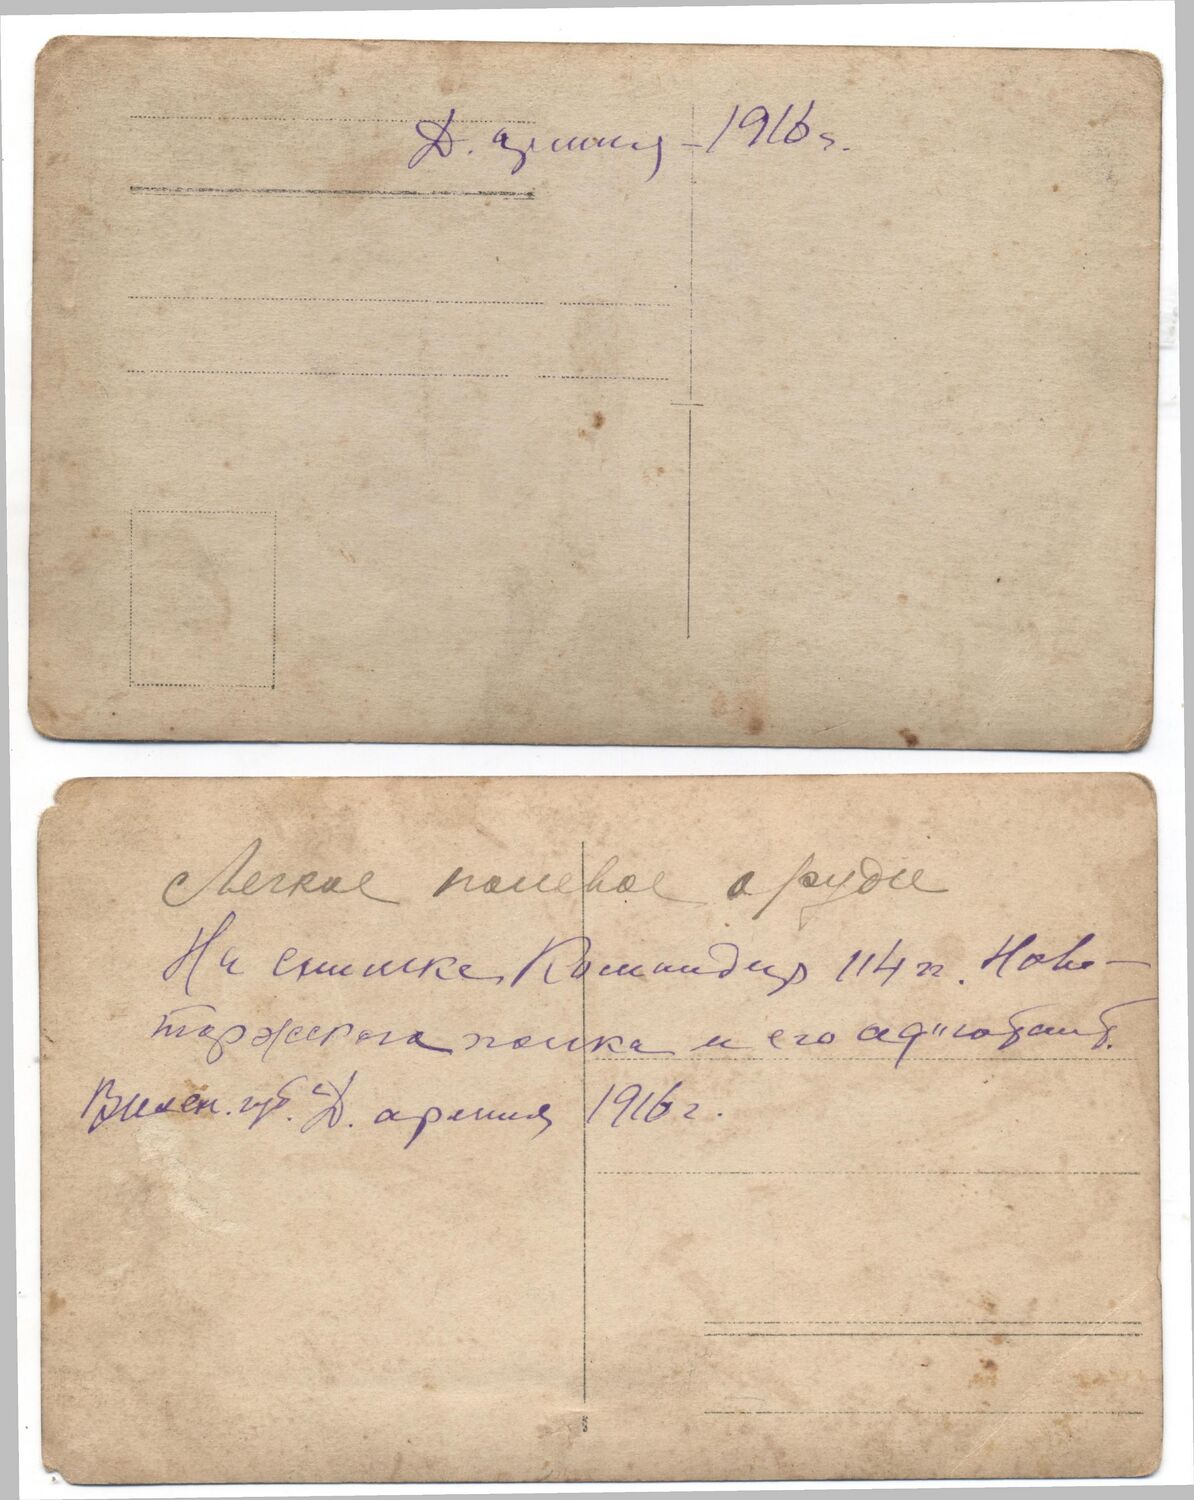 Д. армия – 1916 г.
Легкое полевое орудие
На снимке Командир 114 п. Ново-
торжского полка и его ад"ютант.
Вилен. губ. Д. армия 1916 г.